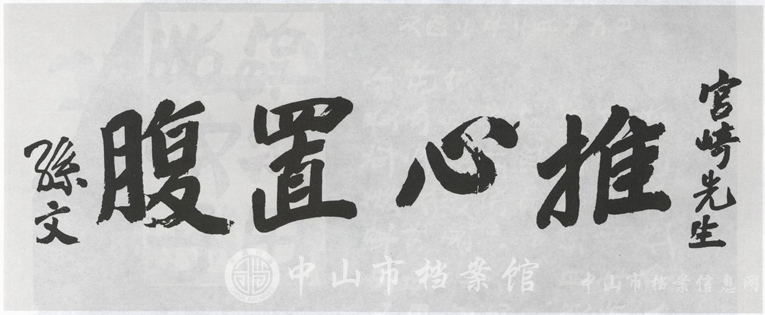 宮崎先生
推心置腹
孫文
中山市档案馆
中山市档案信息网